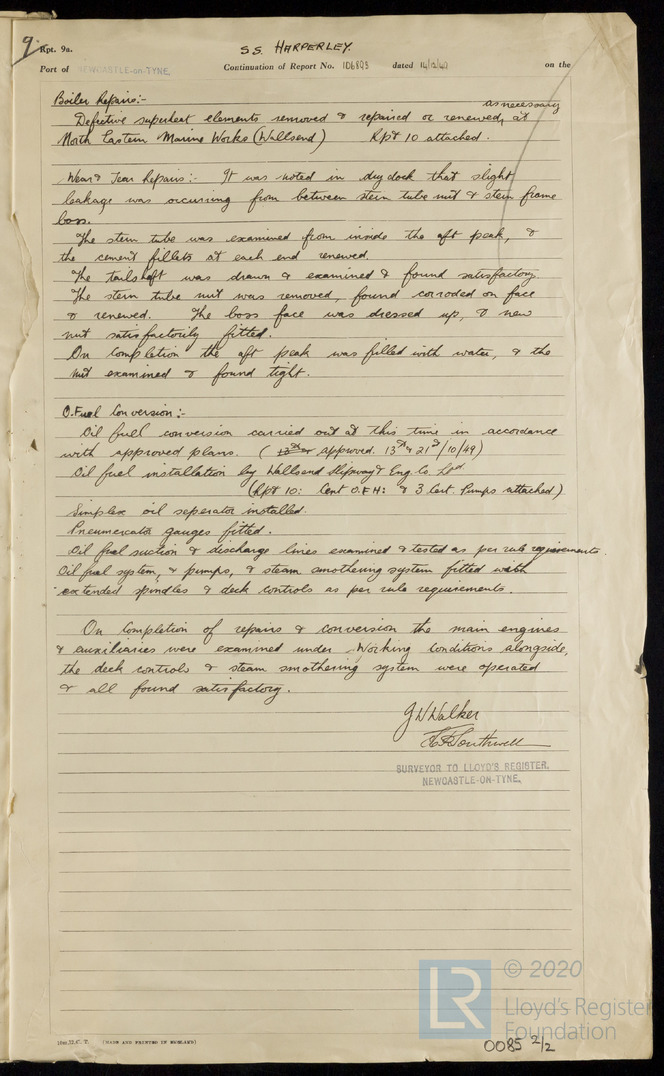 9
Rpt. 9a.
S.S. HARPERLEY.
Port of NEWCASTLE-ON-TYNE. Continuation of Report No. 106893 dated 14/12/49 on the
Boiler Repairs:-
as necessary
Defective superheat elements removed & repaired or renewed, at
North Eastern Marine Works (Wallsend) Rpt 10 attached.
Wear & Tear Repairs:- It was noted in dry dock that slight
leakage was occuring from between stern tube nut & stern frame
boss.
The stern tube was examined from inside the aft peak, &
the cement fillets at each end renewed.
The tailshaft was drawn & examined & found satisfactory.
The stern tube nut was removed, found corroded on face
& renewed. The boss face was dressed up, & new
nut satisfactorily fitted.
On completion the aft peak was filled with water, & the
nut examined & found tight.
O.Fuel Conversion:-
Oil fuel conversion carried out at this time in accordance
with approved plans. ( approved. 13th & 21st/10/49)
Oil fuel installation by Wallsend Slipway & Eng Co Ltd
(Rpt 10: Cent O.F.H: & 3 Cert. Pumps attached)
Simplex oil seperator installed.
Pneumercator gauges fitted.
Oil fuel suction & discharge lines examined & tested as per rule requirements.
Oil fuel system, & pumps, & steam smothering system fitted with
extended spindles & deck controls as per rule requirements.
On completion of repairs & conversion the main engines
& auxiliaries were examined under working conditions alongside,
the deck controls & steam smothering system were operated
& all found satisfactory.
J W Walker
Southwell
SURVEYOR TO LLOYD'S REGISTER,
NEWCASTLE-ON-TYNE.
LR © 2020
Lloyd's Register
Foundation
(MADE AND PRINTED IN ENGLAND)
0085 2/2